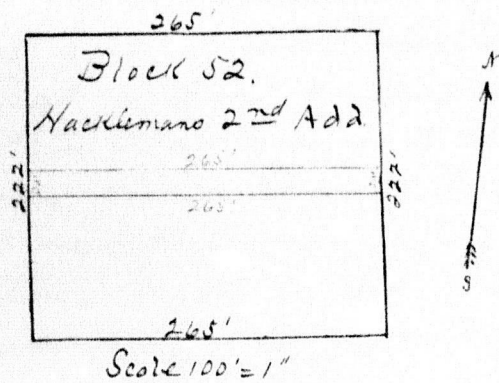 265'
Block 52.
Hacklemans 2nd Add.
265'
222'
222'
265'
265'
Scale 100' = 1"
N
S